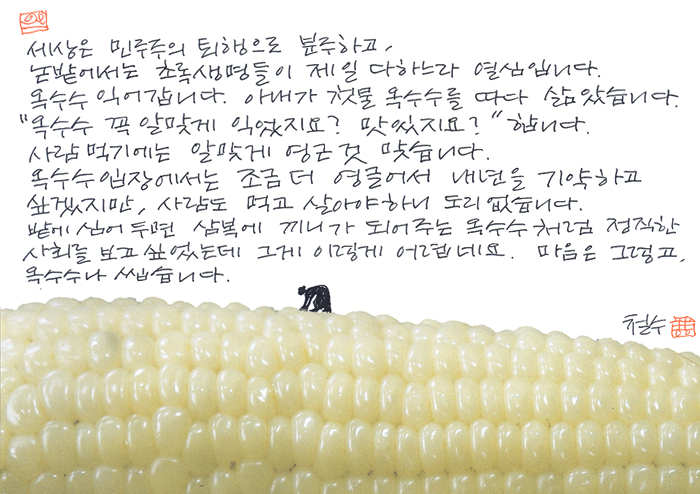 세상은 민주주의 퇴행으로 분주하고,
논밭에서는 초록생명들이 제일 다하느라 열심입니다.
옥수수 익어갑니다. 아내가 첫물 옥수수를 따다 삶았습니다.
"옥수수 꼭 알맞게 익었지요? 맛있지요?" 합니다.
사람 먹기에는 알맞게 영근 것 맞습니다.
옥수수 입장에서는 조금 더 영글어서 내년을 기약하고
싶겠지만, 사람도 먹고 살아야하니 도리 없습니다.
밭에 심어 두면 삼복에 끼니가 되어주는 옥수수처럼 정직한
사회를 보고 싶었는데 그게 이렇게 어렵네요. 마음은 그렇고,
옥수수나 씹습니다.
철수